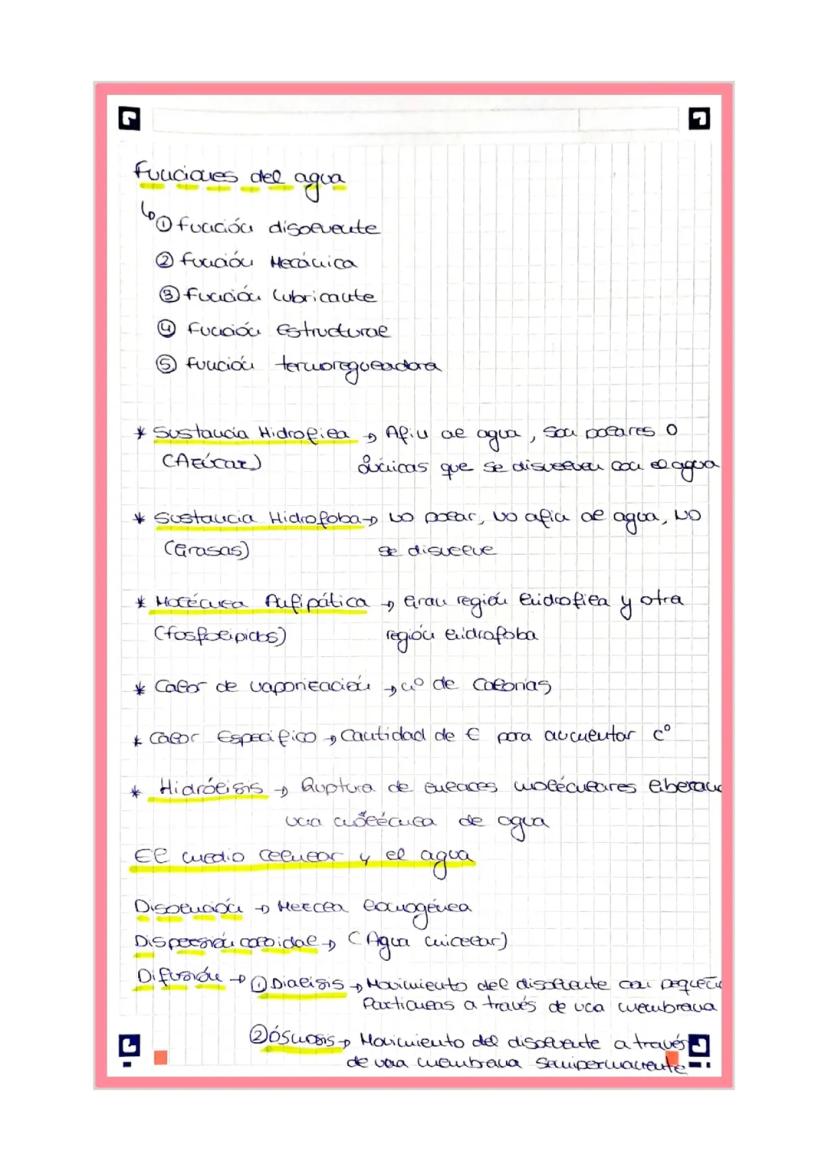 Funciones del agua
① función disolvente
② función Mecánica
③ función Lubricante
④ función Estructural
⑤ función termoreguladora
* Sustancia Hidrofila → Afin al agua, son polares o
(Azúcar) iónicas que se disuelven con el agua
* Sustancia Hidrofoba → No polar, No afin al agua, NO
(Grasas) se disuelve
* Molécula Anfipática → Gran región hidrofila y otra
(fosfolipidos) región hidrofoba
* Calor de vaporización → nº de Calorias
* Calor Especifico → Cantidad de E para aumentar cº
* Hidrólisis → Ruptura de enlaces moléculares liberan
una molécula de agua
El medio celular y el agua
Disolución → Mezcla homogénea
Dispersión coloidal → (Agua micelar)
Difusión → ① Dialisis → Movimiento del disolvente con pequeñ
Particulas a través de una membrana
② ósmosis → Movimiento del disolvente a través
de una membrana semipermanente